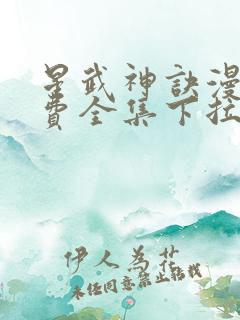 星武神訣漫
費全集下拉
伊人為花
未经同意禁止转载